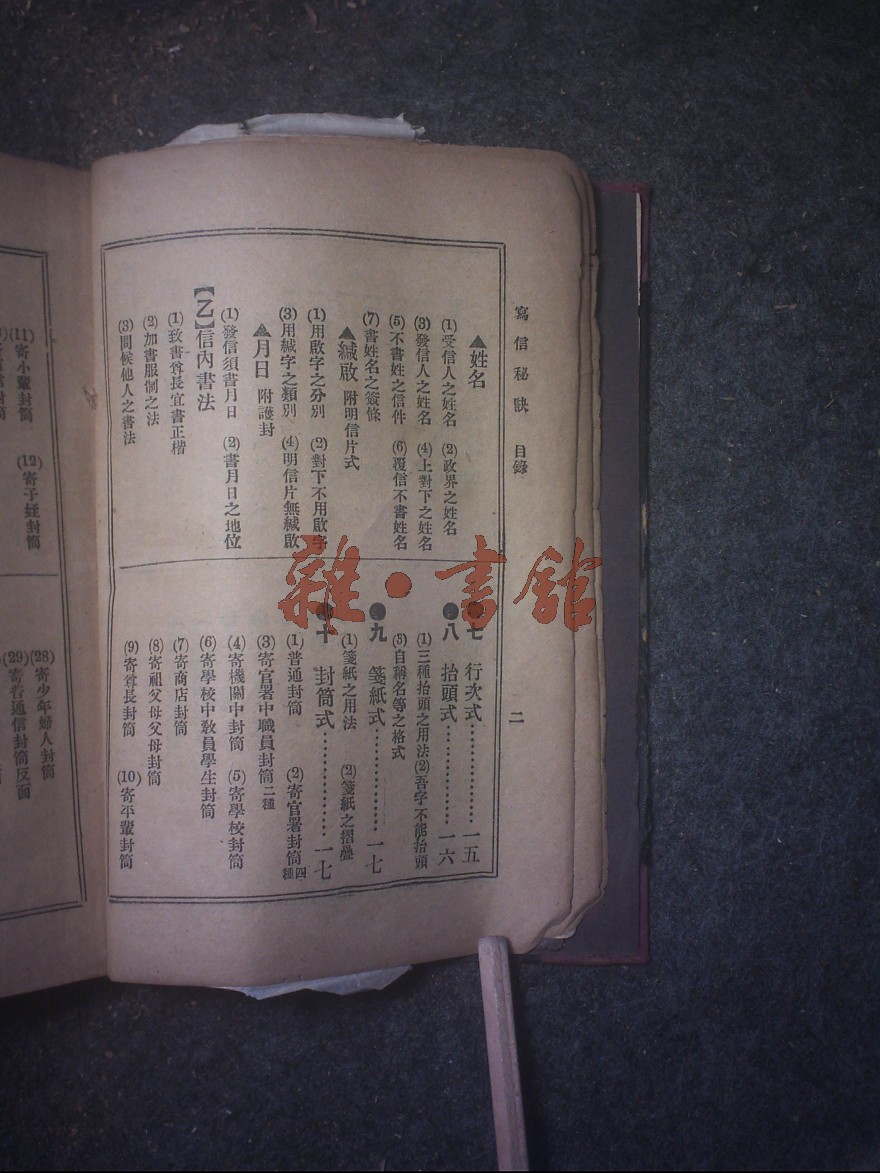 寫信秘訣 目錄 二
▲姓名
(1)受信人之姓名 (2)政界之姓名
(3)發信人之姓名 (4)上對下之姓名
(5)不書姓之信件 (6)覆信不書姓名
(7)書姓名之簽條
▲緘啟 附明信片式
(1)用啟字之分別 (2)對下不用啟字
(3)用緘字之類別 (4)明信片無緘啟
▲月日 附護封
(1)發信須書月日 (2)書月日之地位
【乙】信內書法
(1)致書尊長宜書正楷
(2)加書服制之法
(3)問候他人之書法
●七 行次式…………一五
●八 抬頭式…………一六
(1)三種抬頭之用法(2)吾字不能抬頭
(3)自稱名等之格式
●九 箋紙式…………一七
(1)箋紙之用法 (2)箋紙之摺疊
●十 封筒式…………一七
(1)普通封筒 (2)寄官署封筒四種
(3)寄官署中職員封筒二種
(4)寄機關中封筒 (5)寄學校封筒
(6)寄學校中教員學生封筒
(7)寄商店封筒
(8)寄祖父母父母封筒
(9)寄尊長封筒 (10)寄平輩封筒
(11)寄小輩封筒 (12)寄子姪封筒
(28)寄少年婦人封筒
(29)寄普通信封筒反面
雜·書館